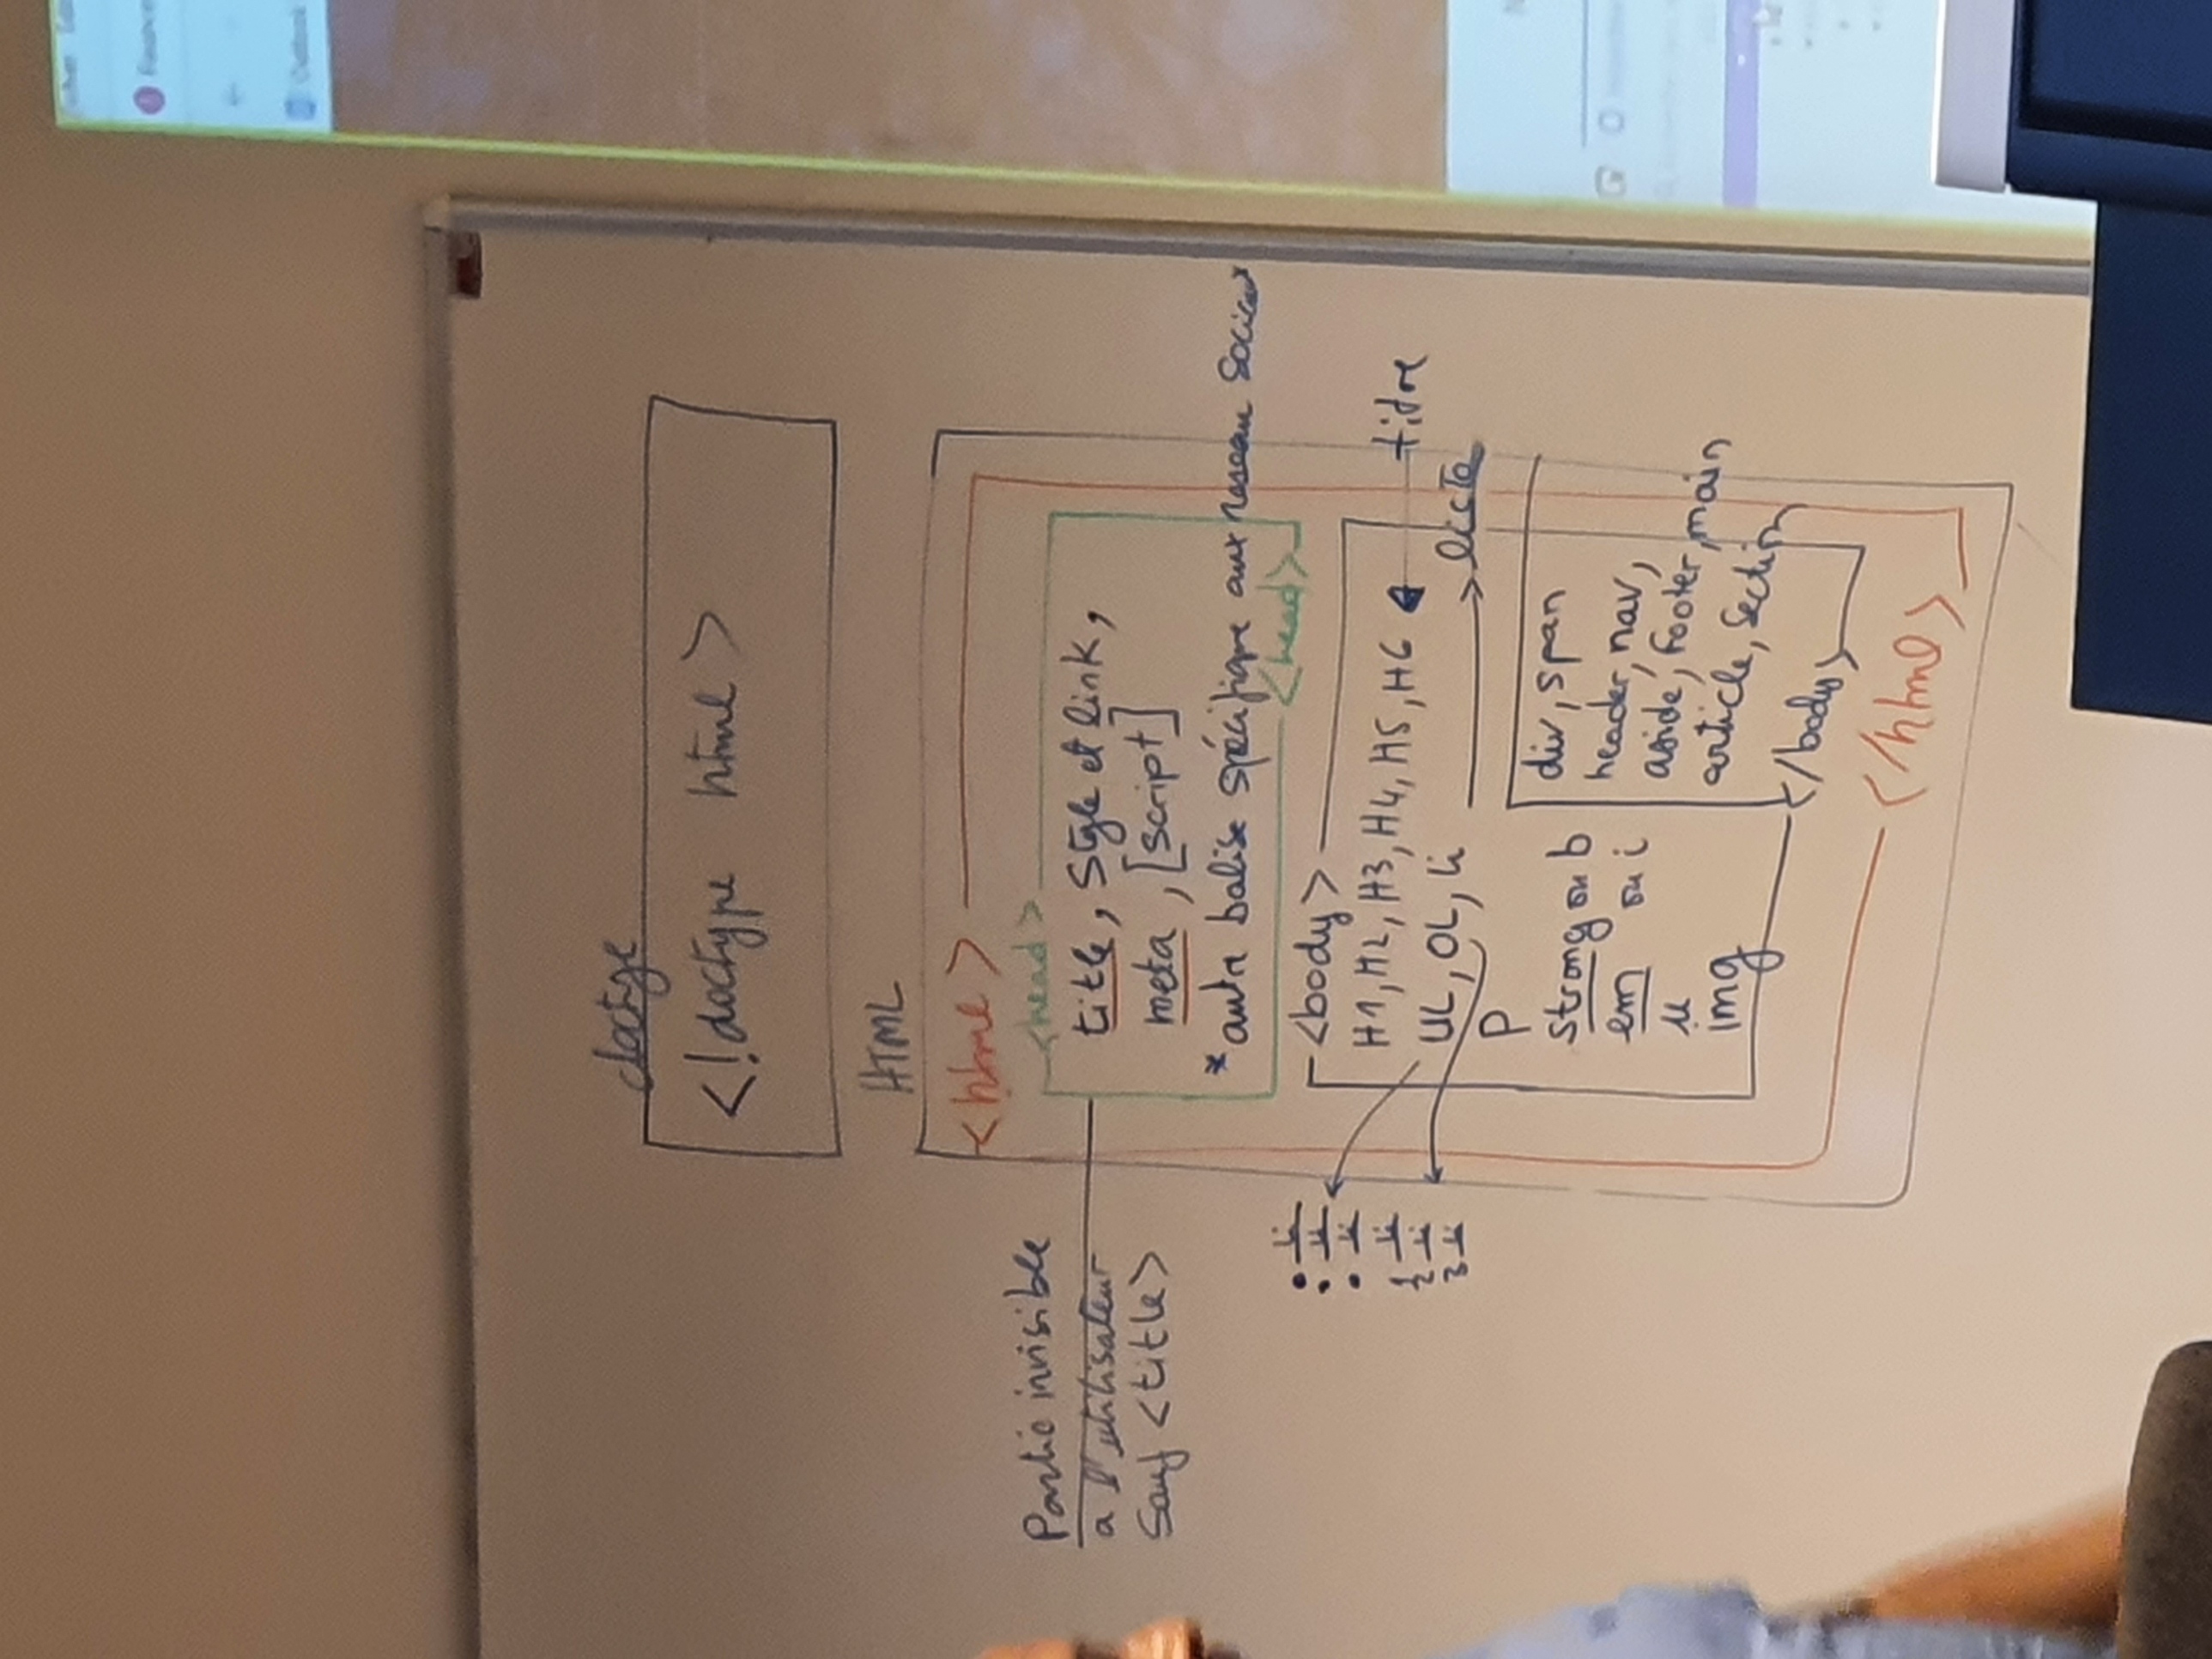 doctype
<!doctype html>
HTML
<html>
<head>
title, style et link,
meta, [script]
* autre balise spécifique aux reseau sociaux
<head>
Partie invisible
a l'utilisateur
Sauf <title>
<body>
H1, H2, H3, H4, H5, H6
titre
UL, OL, li
liste
• li
• li
• li
1 li
2 li
3 li
P
strong ou b
em ou i
u
img
div, span
header, nav,
aside, footer, main
article, section
</body>
</html>
Outlook